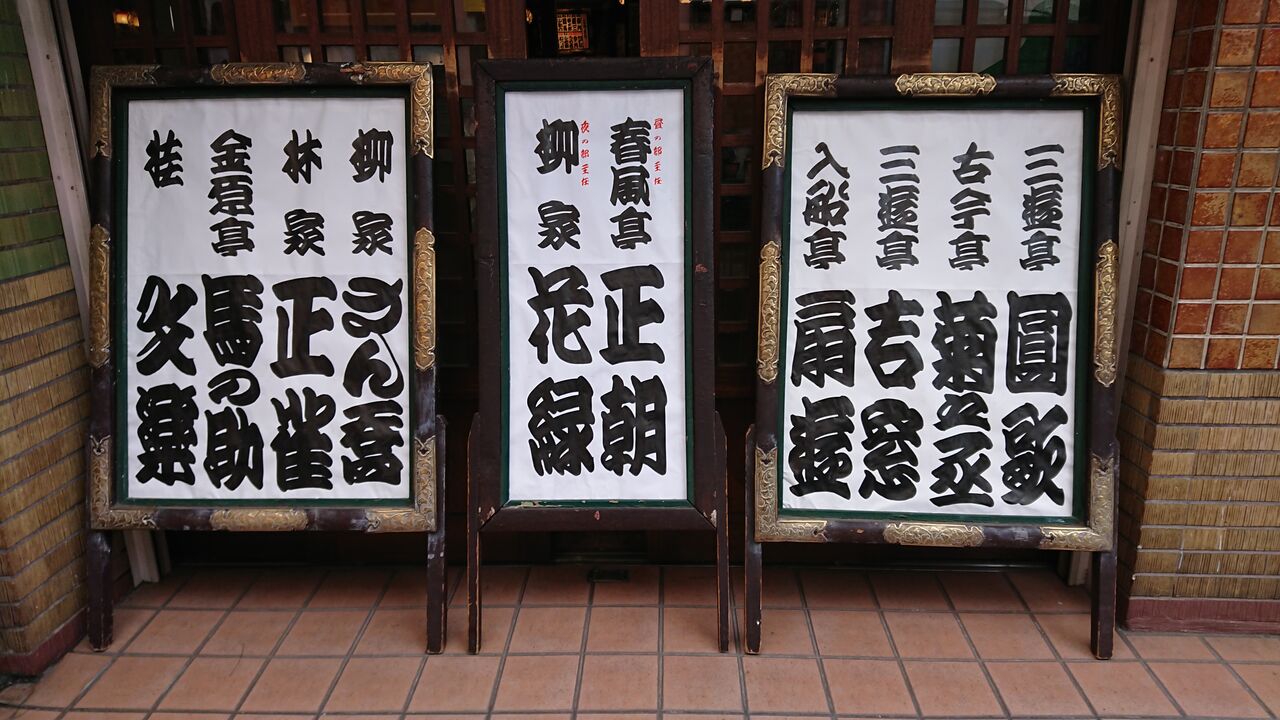 三遊亭 圓歌
古今亭 菊之丞
三遊亭 吉窓
入船亭 扇遊
昼の部主任
春風亭 正朝
夜の部主任
柳家 花緑
柳家 さん喬
林家 正雀
金原亭 馬の助
桂 文楽